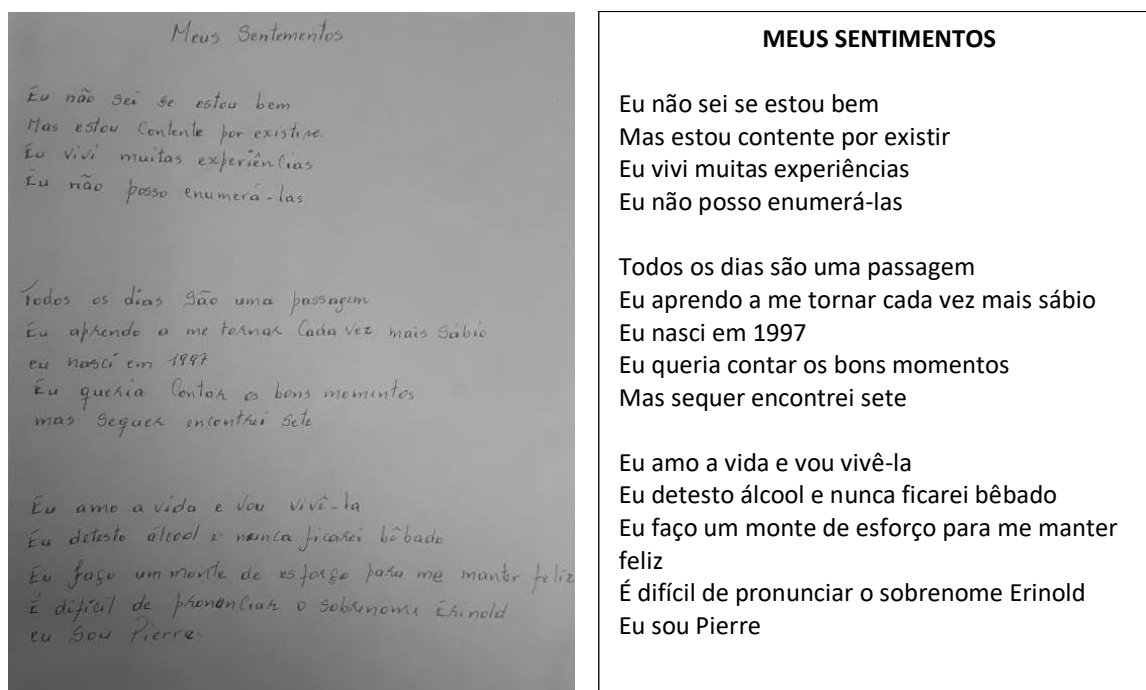 Meus Sentementos
Eu não sei se estou bem
Mas estou Contente por existire
Eu vivi muitas experiências
Eu não posso enumerá-las
Todos os dias são uma passagem
Eu aprendo a me tornar Cada vez mais Sábio
eu nasci em 1997
Eu queria Contar os bons momentos
mas Sequer encontrei Sete
Eu amo a vida e vou vivê-la
Eu detesto álcool e nunca ficarei bêbado
Eu faço um monte de esforço para me manter feliz
É difícil de pronunciar o Sobrenome Erinold
eu Sou Pierre.
MEUS SENTIMENTOS
Eu não sei se estou bem
Mas estou contente por existir
Eu vivi muitas experiências
Eu não posso enumerá-las
Todos os dias são uma passagem
Eu aprendo a me tornar cada vez mais sábio
Eu nasci em 1997
Eu queria contar os bons momentos
Mas sequer encontrei sete
Eu amo a vida e vou vivê-la
Eu detesto álcool e nunca ficarei bêbado
Eu faço um monte de esforço para me manter
feliz
É difícil de pronunciar o sobrenome Erinold
Eu sou Pierre